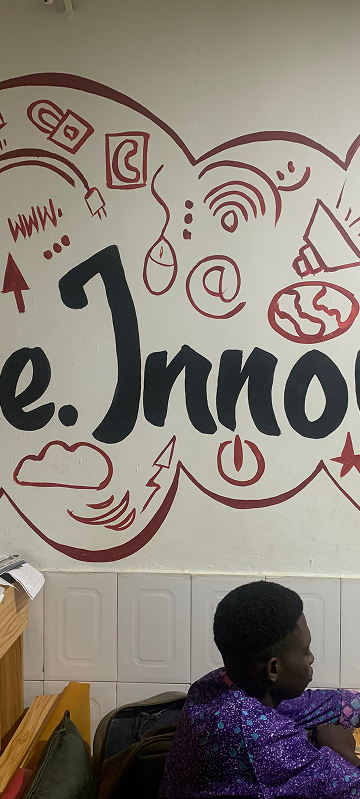 www.
e.Inno